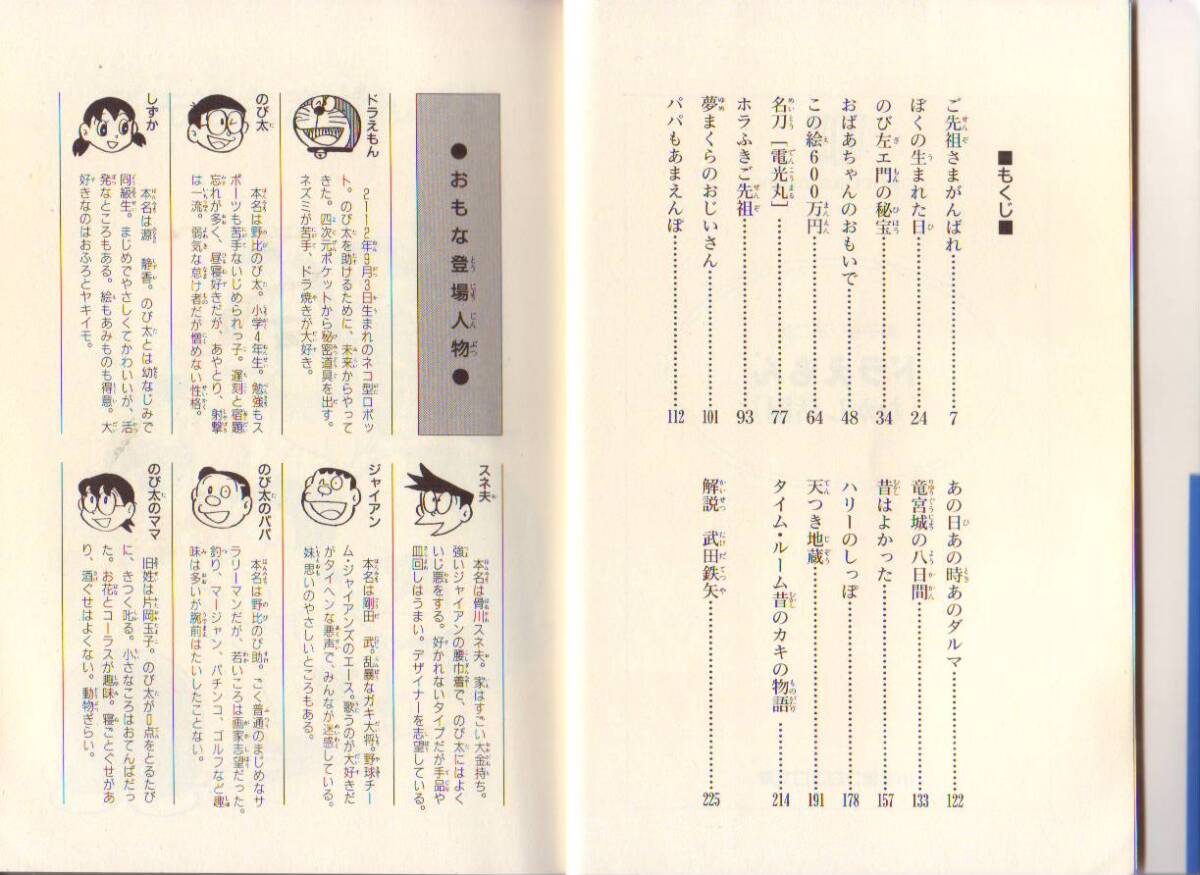 ■もくじ■
ご先祖さまがんばれ……7
ぼくの生まれた日……24
のび左エ門の秘宝……34
おばあちゃんのおもいで……48
この絵600万円……64
名刀「電光丸」……77
ホラふきご先祖……93
夢まくらのおじいさん……101
パパもあまえんぼ……112
あの日あの時あのダルマ……122
竜宮城の八日間……133
昔はよかった……157
ハリーのしっぽ……178
天つき地蔵……191
タイム・ルーム昔のカキの物語……214
解説 武田鉄矢……225
●おもな登場人物●
ドラえもん
2112年9月3日生まれのネコ型ロボッ
ト。のび太を助けるために、未来からやって
きた。四次元ポケットから秘密道具を出す。
ネズミが苦手、ドラ焼きが大好き。
のび太
本名は野比のび太。小学4年生。勉強もス
ポーツも苦手ないじめられっ子。遅刻と宿題
忘れが多く、昼寝好きだが、あやとり、射撃
は一流。弱気な怠け者だが憎めない性格。
しずか
本名は源 静香。のび太とは幼なじみで
同級生。まじめでやさしくてかわいいが、活
発なところもある。絵もあみものも得意。大
好きなのはおふろとヤキイモ。
スネ夫
本名は骨川スネ夫。家はすごい大金持ち。
強いジャイアンの腰巾着で、のび太にはよく
いじ悪をする。好かれないタイプだが手品や
皿回しはうまい。デザイナーを志望している。
ジャイアン
本名は剛田 武。乱暴なガキ大将。野球チー
ム・ジャイアンズのエース。歌うのが大好きだ
がタイヘンな悪声で、みんなが迷惑している。
妹思いのやさしいところもある。
のび太のパパ
本名は野比のび助。ごく普通のまじめなサ
ラリーマンだが、若いころは画家志望だった。
釣り、マージャン、パチンコ、ゴルフなど趣
味は多いが腕前はたいしたことない。
のび太のママ
旧姓は片岡玉子。のび太が0点をとるたび
に、きつく叱る。小さなころはおてんばだっ
た。お花とコーラスが趣味。寝ごとぐせがあ
り、酒ぐせはよくない。動物ぎらい。